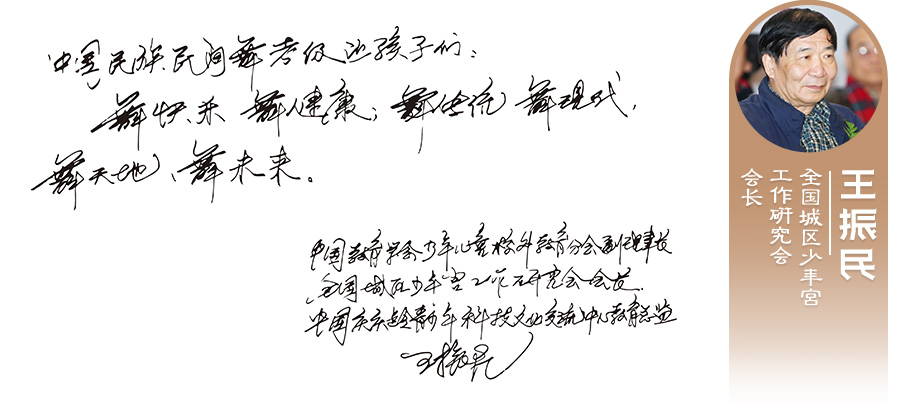 中国民族民间舞考级让孩子们：
舞快乐 舞健康；舞传统 舞现代，
舞天地、舞未来。
中国教育学会少年儿童校外教育分会副理事长
全国城区少年宫工作研究会会长.
中国宋庆龄青少年科技文化交流中心教育总监
王振民
王振民
全国城区少年宫
工作研究会
会长